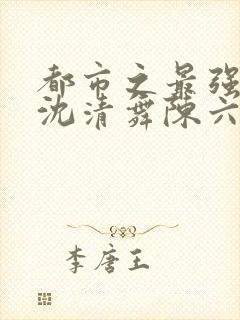 都市之最强
沈清舞陈六
李唐王